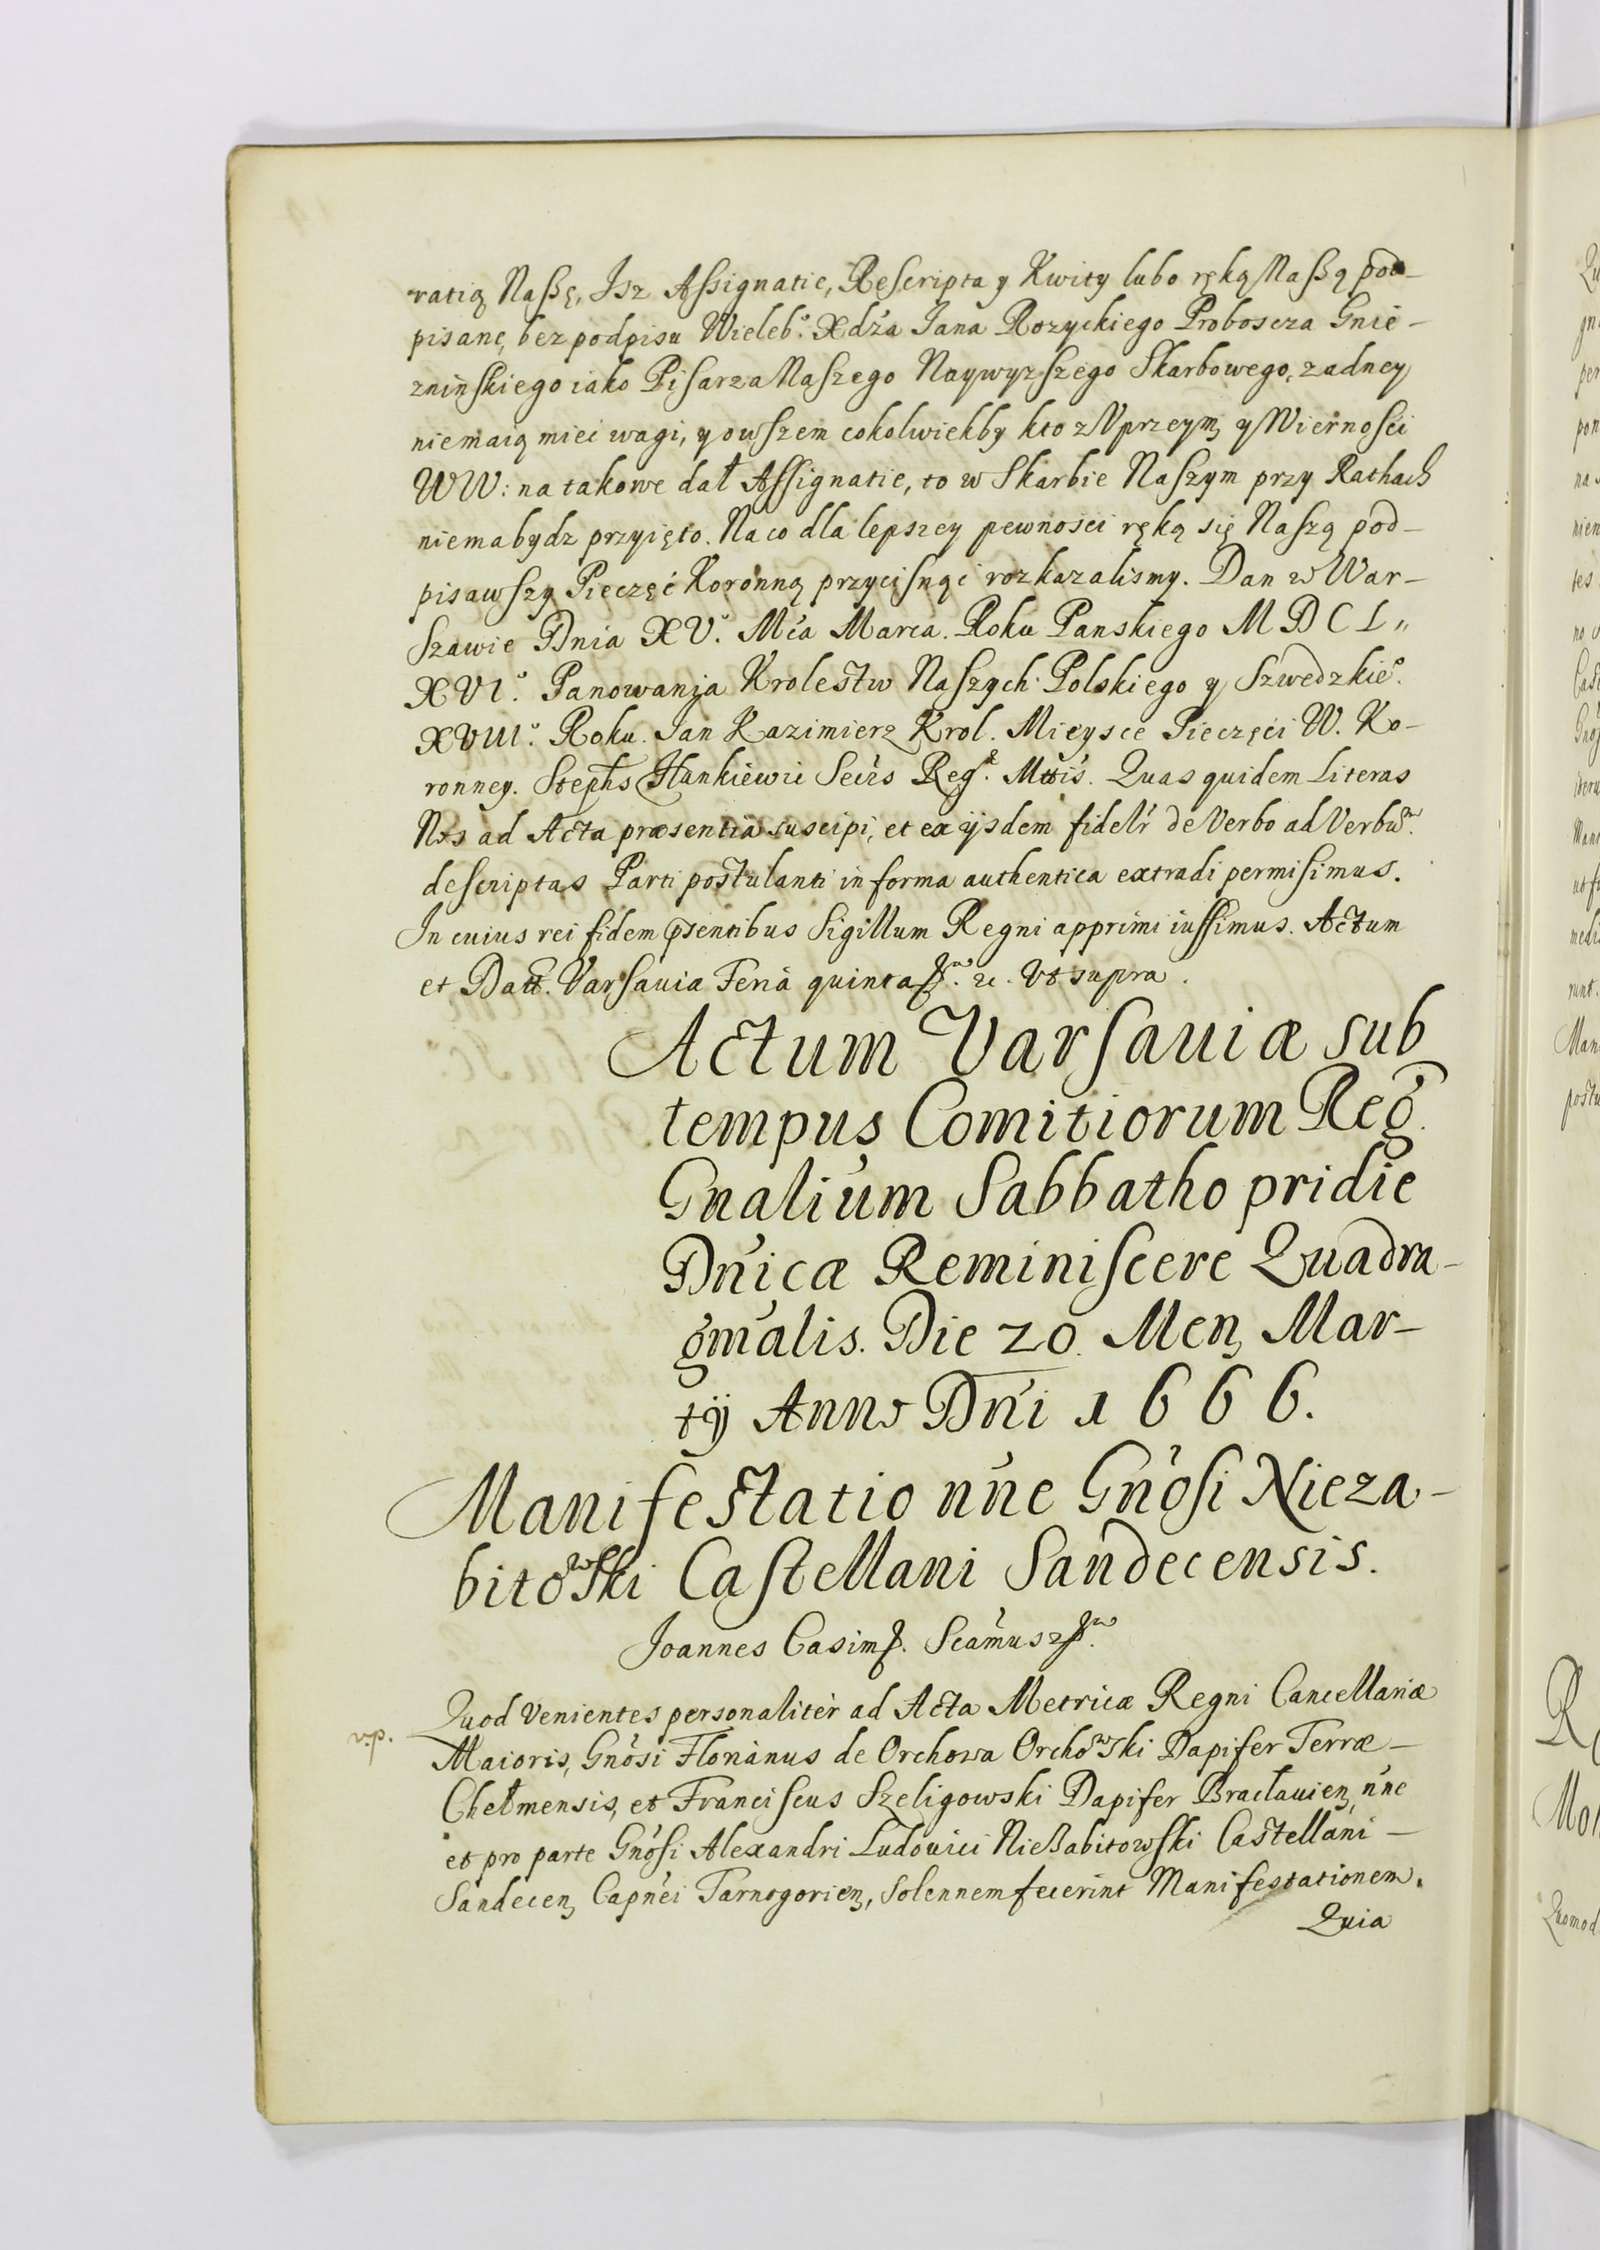 ratią Naszę, Isz Assignatie, Rescripta y Kwity lubo ręką Naszą pod-
pisane, bez podpisu Wieleb.° Xdźa Jana Rozyckiego Proboscza Gnie-
znińskiego iako Pisarza Naszego Naywyzszego Skarbowego, zadney
niemaią mieć wagi, y owszem cokolwiekby kto z Vprzeym, y Wierności
WW: na takowe dał Assignatie, to w Skarbie Naszym przy Rathach
niema bydz przyięto. Na co dla lepszey pewności ręką się Naszą pod-
pisawszy Pieczęć Koronną przycisnąć rozkazalismy. Dan w War-
szawie Dnia XV.° Mća Marca. Roku Panskiego MDCL„
XVI.° Panowania Krolestw Naszych Polskiego y Szwedzkie.°
XVIII.° Roku. Jan Kazimierz Krol. Mieysce Pieczęci W. Ko-
ronney. Stephs Hankiewic Secrs Reg. Mttis. Quas quidem Literas
Nos ad Acta præsentia suscipi, et ex ijsdem fidelr de Verbo ad Verbum
descriptas Parti postulanti in forma authentica extradi permisimus.
In cuius rei fidem psentibus Sigillum Regni apprimi iussimus. Actum
et Datt. Varsavia Feria quinta pt. Vt supra.
Actum Varsauiæ sub
tempus Comitiorum Reg.
Gnalium Sabbatho pridie
Dnicæ Reminiscere Quadra-
gmalis. Die 20. Men, Mar-
tÿ Anno Dni 1666.
Manifestatio nne Gnosi Nieza-
bitowski Castellani Sandecensis.
Joannes Casim. Scamus
v.p.
Quod Venientes personaliter ad Acta Metricæ Regni Cancellariæ
Maioris, Gnosi Florianus de Orchowa Orchowski Dapifer Terræ-
Chełmensis, et Franciscus Szeligowski Dapifer Bracłauien, nne
et pro parte Gnosi Alexandri Ludouici Nießabitowski Castellani-
Sandecen, Capnei Tarnogorien, Solennem fecerint Manifestationem.
Quia